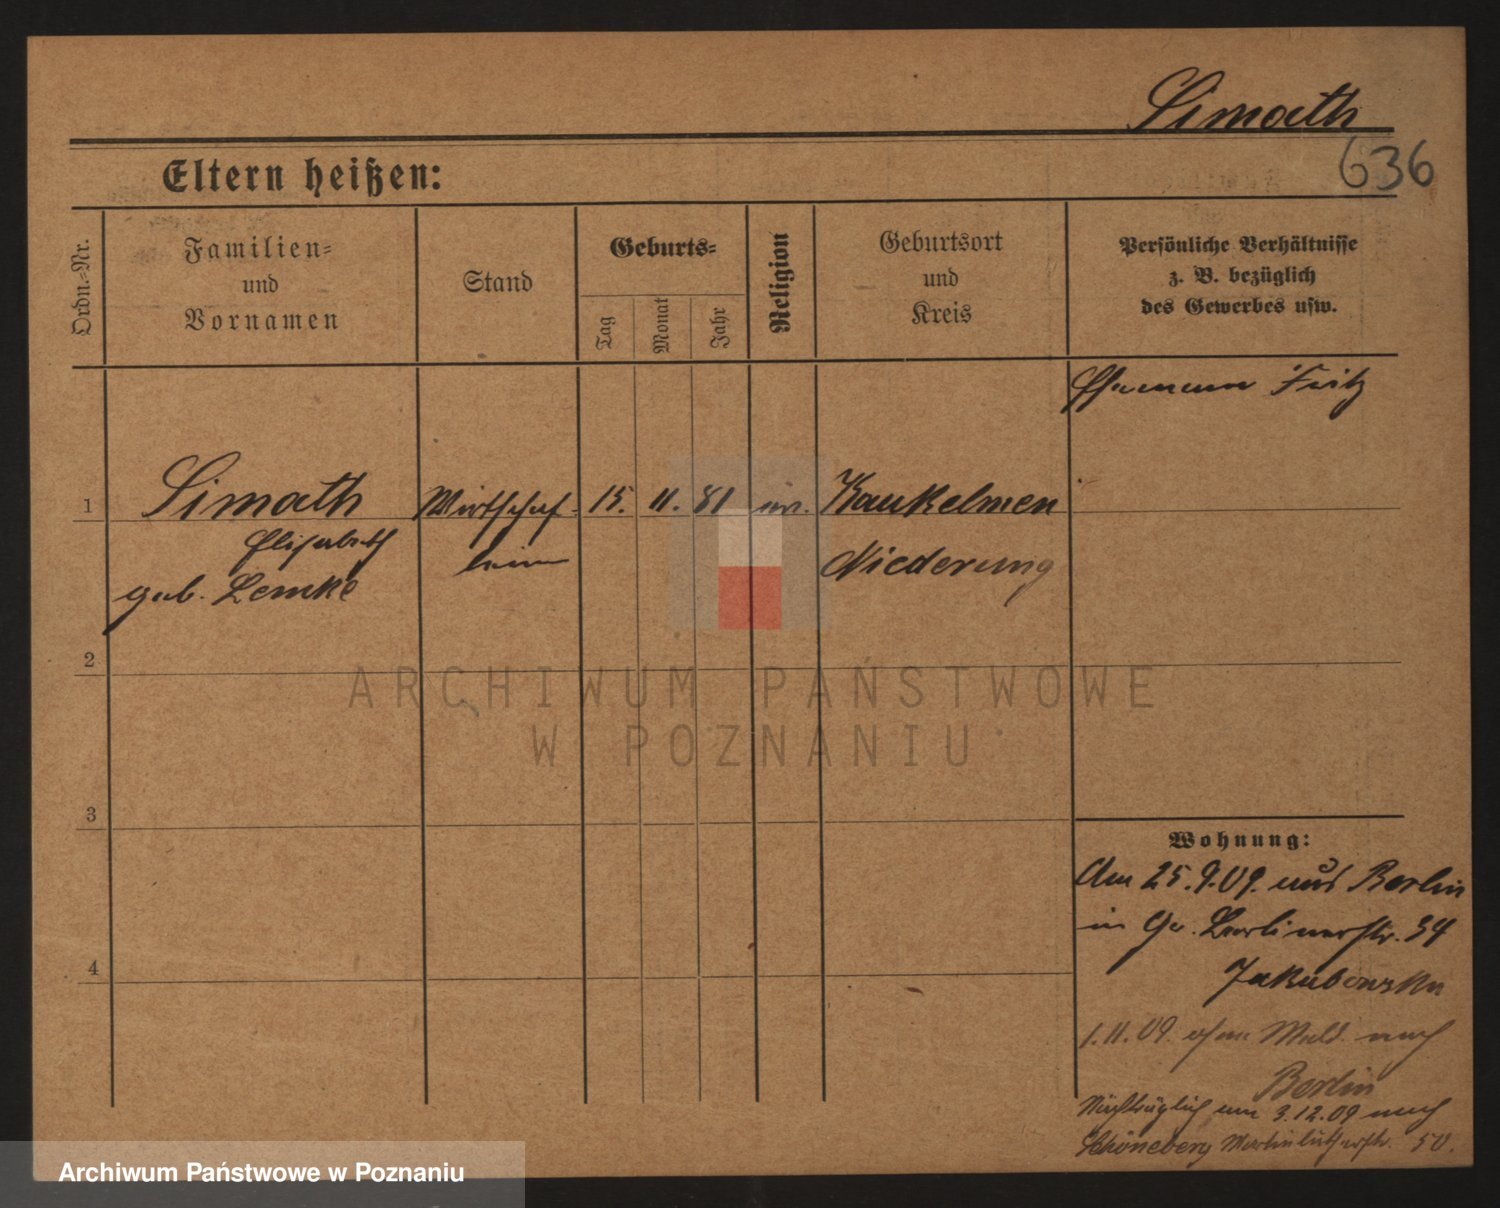 Simath
636
Eltern heißen:
Ordn.-Nr.
Familien-
und
Vornamen
Stand
Geburts-
Tag
Monat
Jahr
Religion
Geburtsort
und
Kreis
Persönliche Verhältnisse
z. B. bezüglich
des Gewerbes usw.
Ehemann Fritz
1
Simath
Elisabeth
geb. Lemke
Wirtschaf-
terin
15.
11.
81
ev.
Kaukelmen
Niederung
2
3
4
Wohnung:
Am 25.9.09. aus Berlin
in Gr. Berlinerstr. 34
Jakubowska
1.11.09. ohne Meld. nach
Berlin
Nachträglich am 3.12.09 nach
Schöneberg Martinlutherstr. 50.
ARCHIWUM PAŃSTWOWE
W POZNANIU
Archiwum Państwowe w Poznaniu